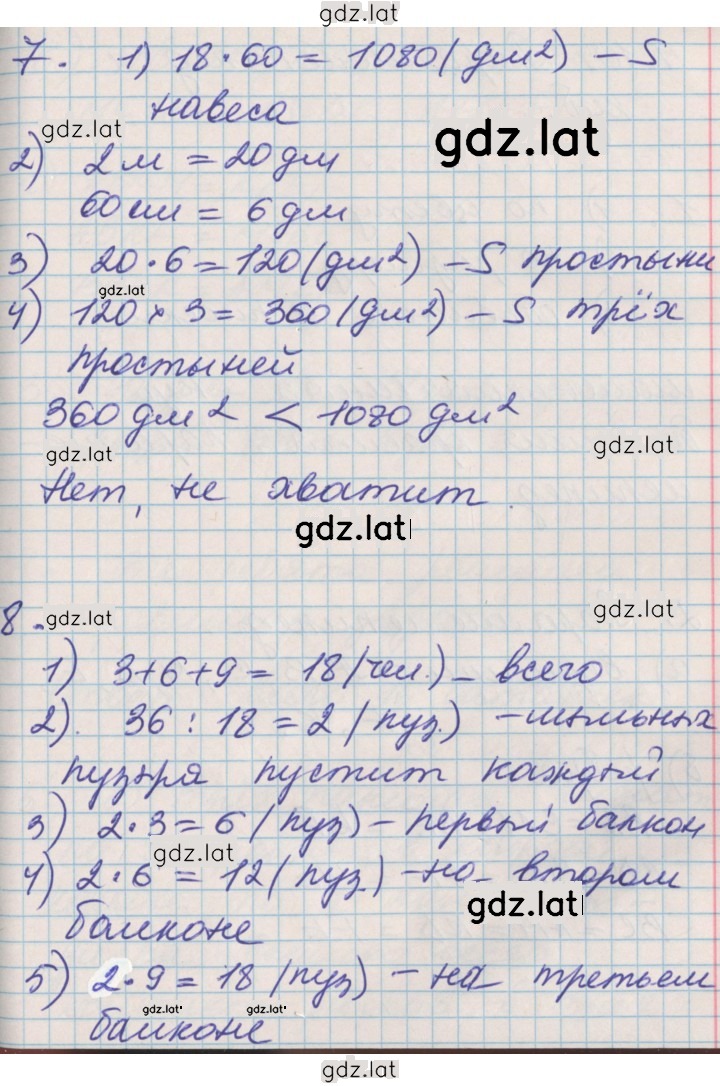 gdz.lat
7. 1) 18 · 60 = 1080 (дм²) – S
навеса
gdz.lat
gdz.lat
2) 2 м = 20 дм
60 см = 6 дм
3) 20 · 6 = 120 (дм²) – S простыни
gdz.lat
4) 120 × 3 = 360 (дм²) – S трёх
простыней
360 дм² < 1080 дм²
gdz.lat
gdz.lat
Нет, не хватит
gdz.lat
8. gdz.lat
gdz.lat
1) 3+6+9 = 18 (чел.) – всего
2). 36 : 18 = 2 (пуз.) – мыльных
пузыря пустит каждый
3) 2 · 3 = 6 (пуз) – первый балкон
gdz.lat
4) 2 · 6 = 12 (пуз.) – на втором
gdz.lat
балконе
5) 2 · 9 = 18 (пуз) – на третьем
gdz.lat
gdz.lat
балконе
gdz.lat